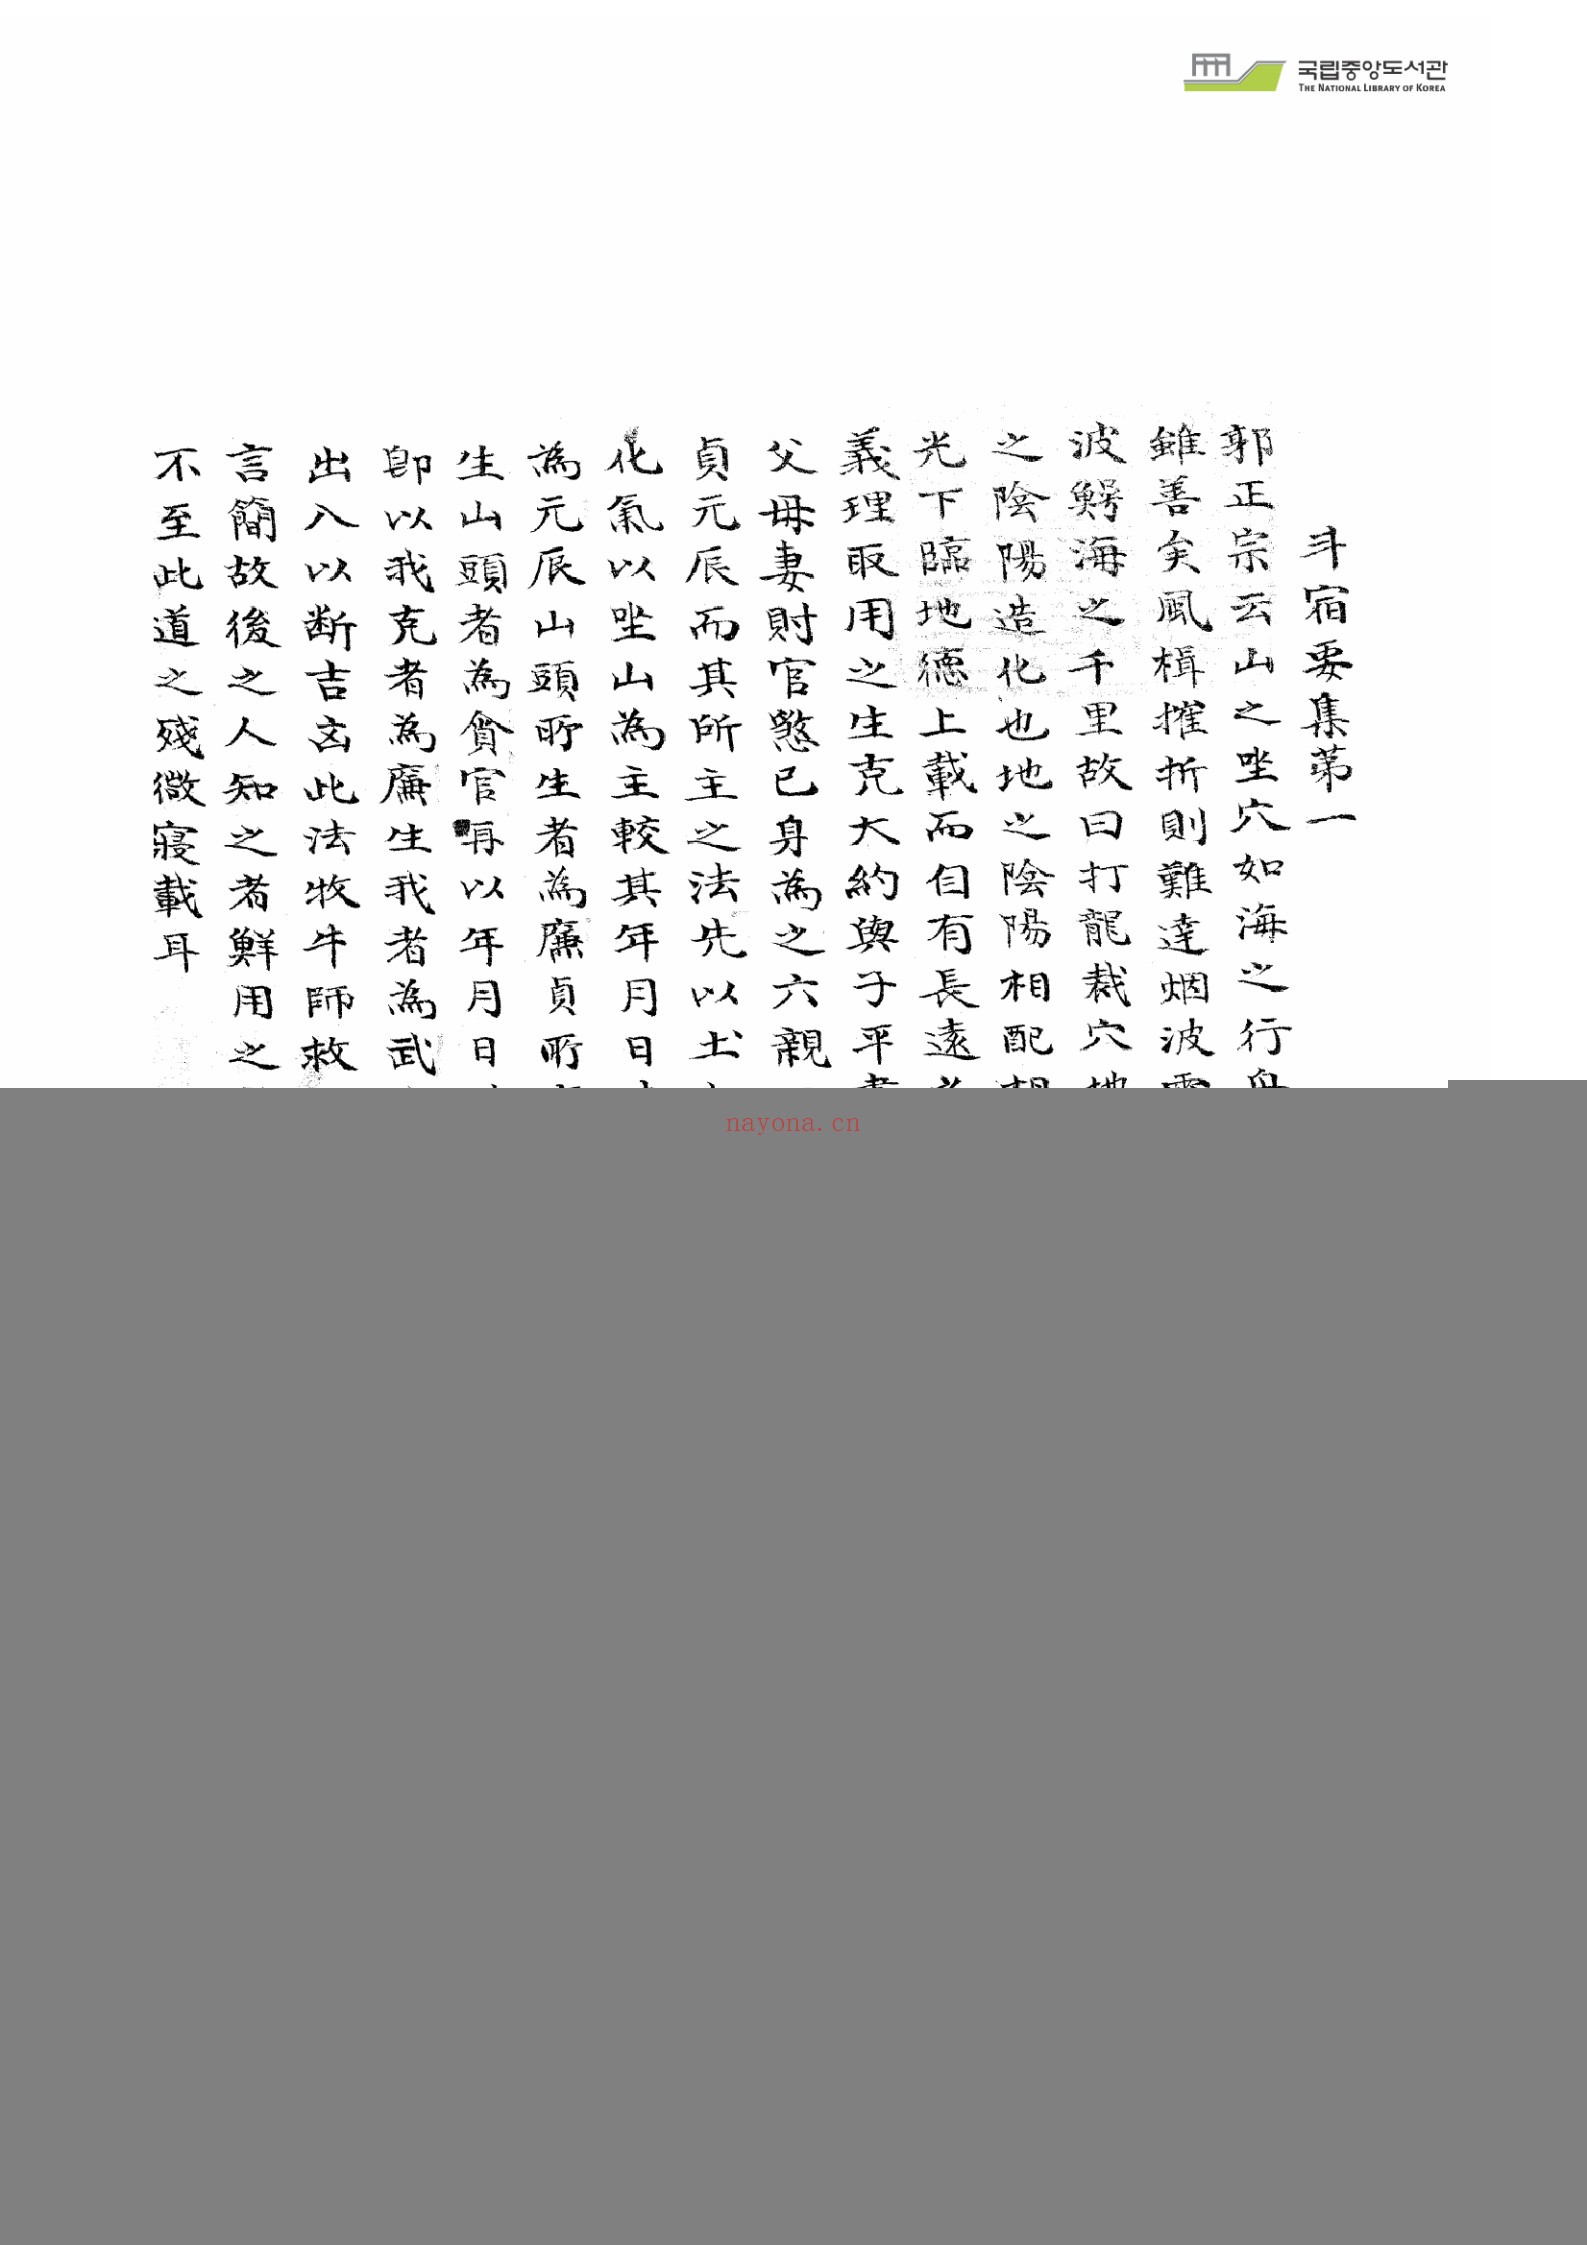 국립중앙도서관
THE NATIONAL LIBRARY OF KOREA
斗宿要集第一
郭正宗云山之坐穴如海之行舟
雖善矣風楫摧折則難達烟波
波鰐海之千里故曰打龍裁穴
之陰陽造化也地之陰陽相配
光下臨地德上載而自有長遠
義理取用之生克大約與子平
父母妻財官慾已身為之六親
貞元辰而其所主之法先以
化氣以坐山為主較其年月日
為元辰山頭所生者為廉貞所
生山頭者為貪官再以年月日
卽以我克者為廉生我者為武
出入以斷吉凶此法牧牛師救
言簡故後之人知之者鮮用之
不至此道之殘微寢載耳
nayona.cn